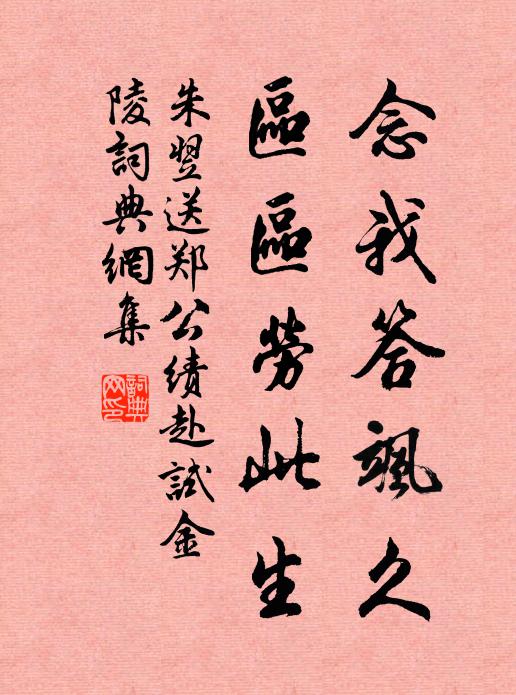 念我答颯久
區區勞此生
朱翌送郑公绩赴試金
陵詞典網集
詞典網印